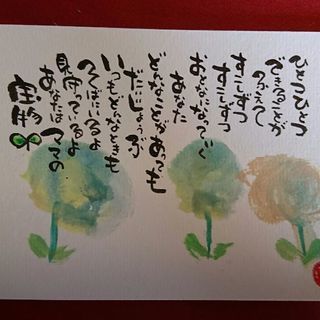 ひとつひとつ
できることが
ふえて
すこしずつ
すこしずつ
おとなになっていく
あなた
どんなことがあっても
だいじょうぶ
いつもどんなときも
そばにいるよ
見守っているよ
あなたは ママの
宝物